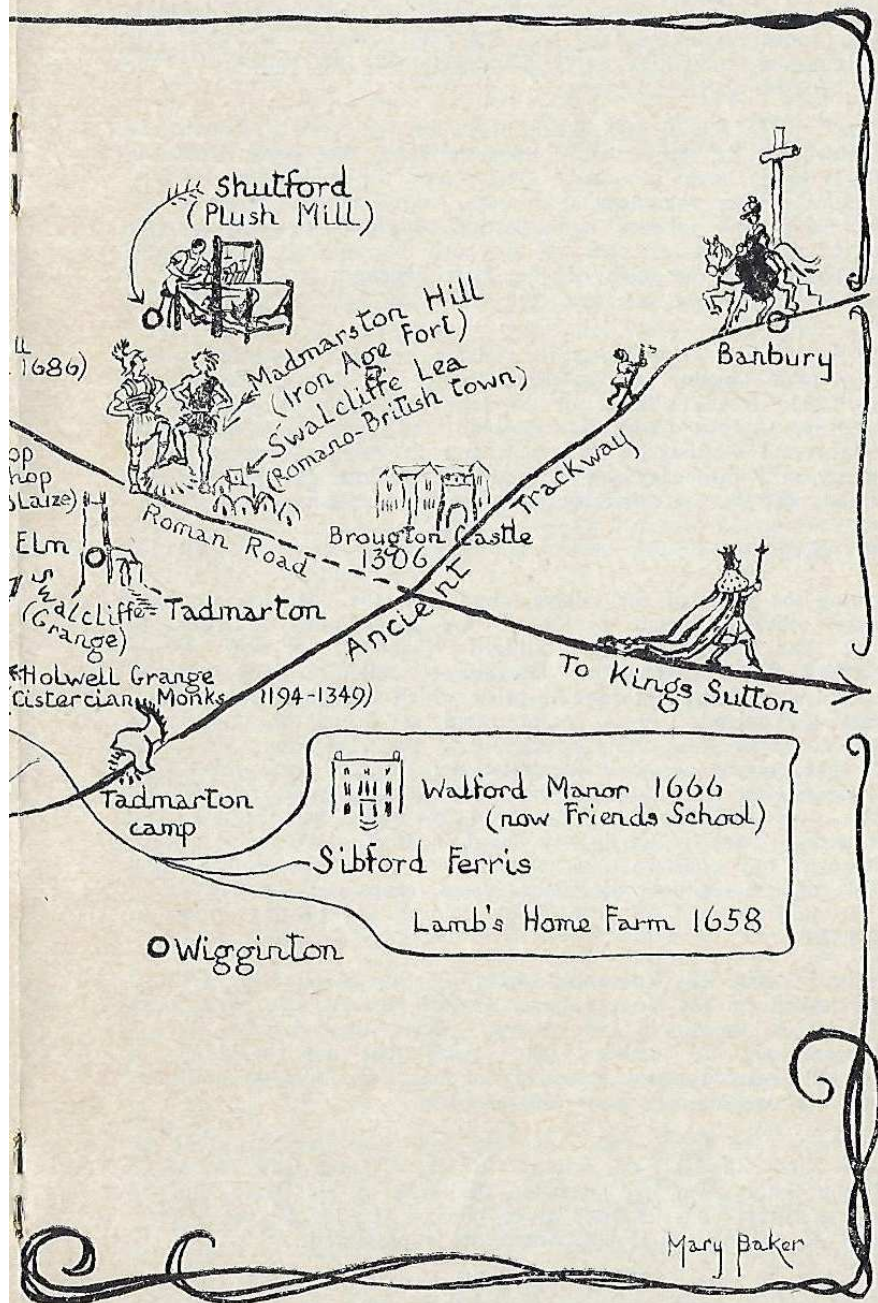 Shutford
(Plush Mill)
Madmarston Hill
(Iron Age Fort)
&
Swalcliffe Lea
(Romano-British town)
Banbury
1686)
Trackway
Laize)
Roman Road
Brougton Castle
1306
Elm
Swalcliffe
(Grange)
Tadmarton
Ancient
Holwell Grange
(Cistercian Monks 1194-1349)
To Kings Sutton
Tadmarton
camp
Walford Manor 1666
(now Friends School)
Sibford Ferris
Lamb's Home Farm 1658
Wigginton
Mary Baker